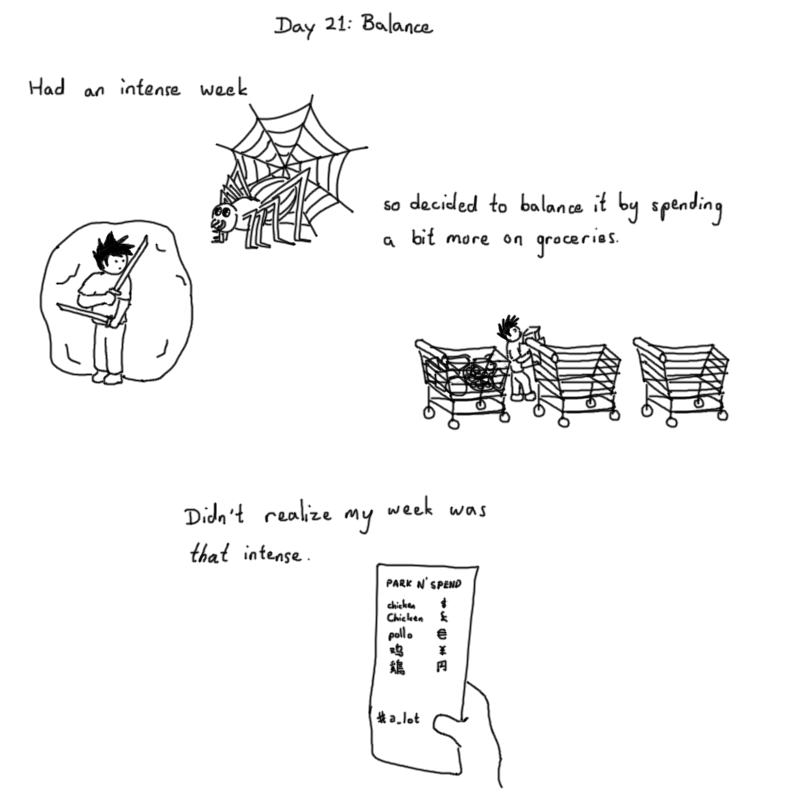 Day 21: Balance
Had an intense week
so decided to balance it by spending
a bit more on groceries.
Didn't realize my week was
that intense.
PARK N' SPEND
chicken $
Chicken £
pollo €
鸡 ¥
鶏 円
#a_lot